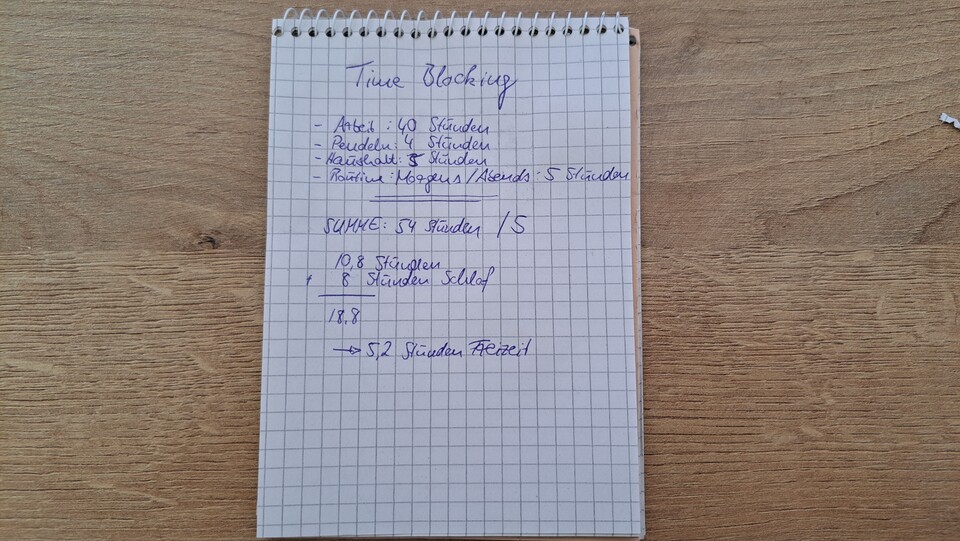 Time Blocking
- Arbeit: 40 Stunden
- Pendeln: 4 Stunden
- Haushalt: 5 Stunden
- Routine: Morgens/Abends: 5 Stunden
SUMME: 54 Stunden /5
10,8 Stunden
+ 8 Stunden Schlaf
18,8
→ 5,2 Stunden Freizeit